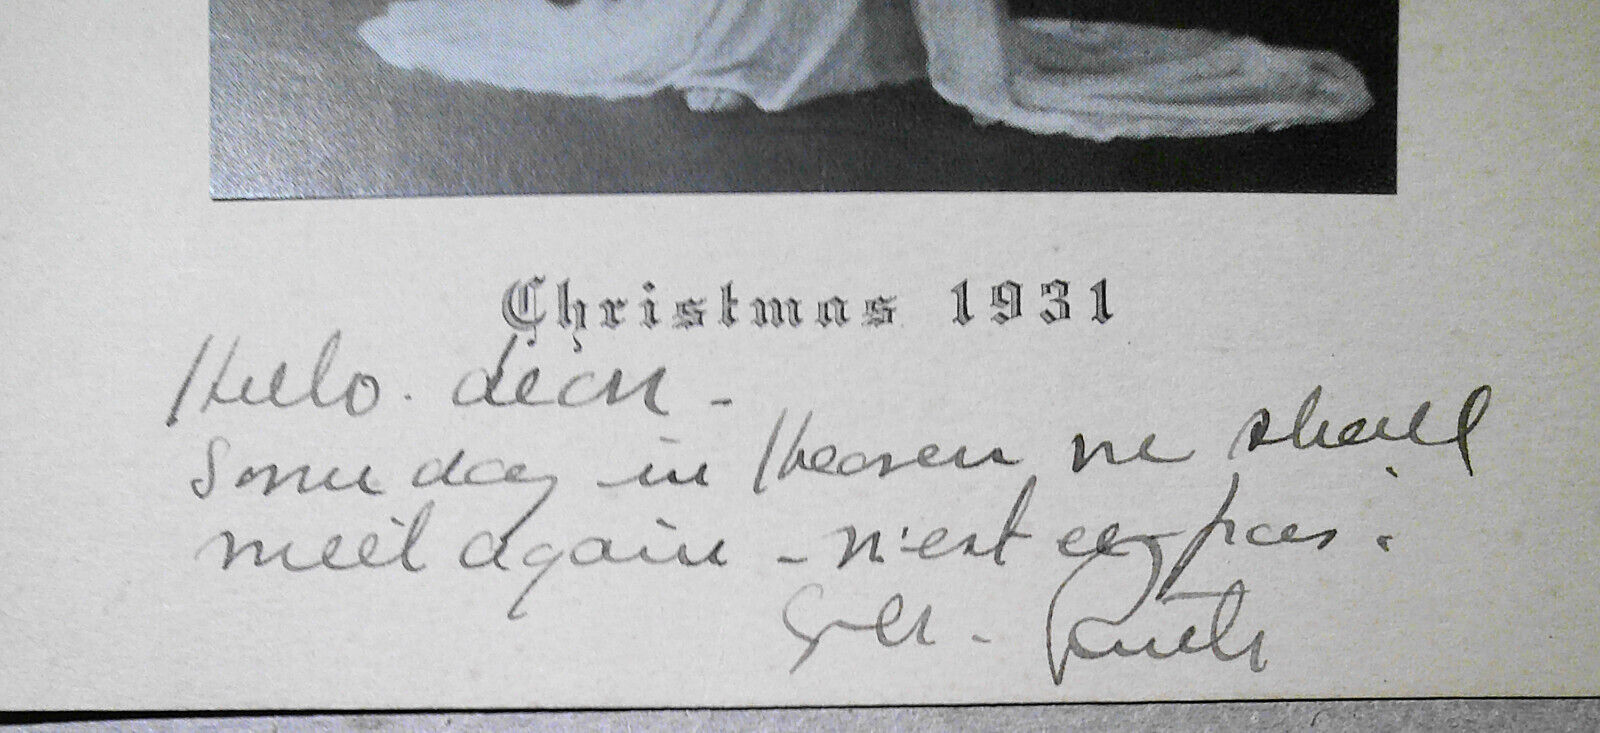 Christmas 1931
Hello. dear -
Some day in Heaven we shall
meet again - n'est ce-pas.
Ruth